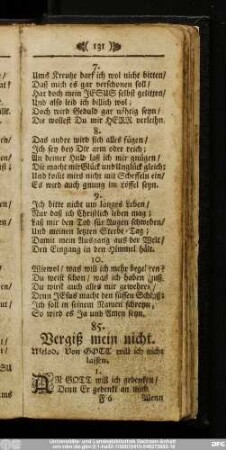 131
7.
Ums Kreutze darf ich wol nicht bitten/
Daß mich es gar verschonen soll/
Hat doch mein JESUS selbst gelitten/
Und also leid ich billich wol;
Doch wird Gedult gar nöhtig seyn/
Die wollest Du mir HERR verleihn.
8.
Das andre wird sich alles fügen/
Ich sey bey Dir arm oder reich;
An deiner Huld laß ich mir gnügen/
Die macht mir Glück und Unglück gleich;
Und kömt mirs nicht mit Scheffeln ein/
Es wird auch gnung im Löffel seyn.
9.
Ich bitte nicht um langes Leben/
Nur daß ich Christlich leben mag;
Laß mir den Tod für Augen schweben/
Und meinen letzten Sterbe-Tag;
Damit mein Ausgang aus der Welt/
Den Eingang in den Himmel hält.
10.
Wiewol/ was will ich mehr begehren?
Du weist schon/ was ich haben muß.
Du wirst auch alles mir gewehren/
Denn JEsus macht den süssen Schluß:
Ich soll in seinem Namen schreyn/
So wird es Ja und Amen seyn.
85.
Vergiß mein nicht.
Melod. Von GOTT will ich nicht
lassen.
1.
AN GOTT will ich gedenken/
Denn Er gedenkt an mich.
F 6 Wenn